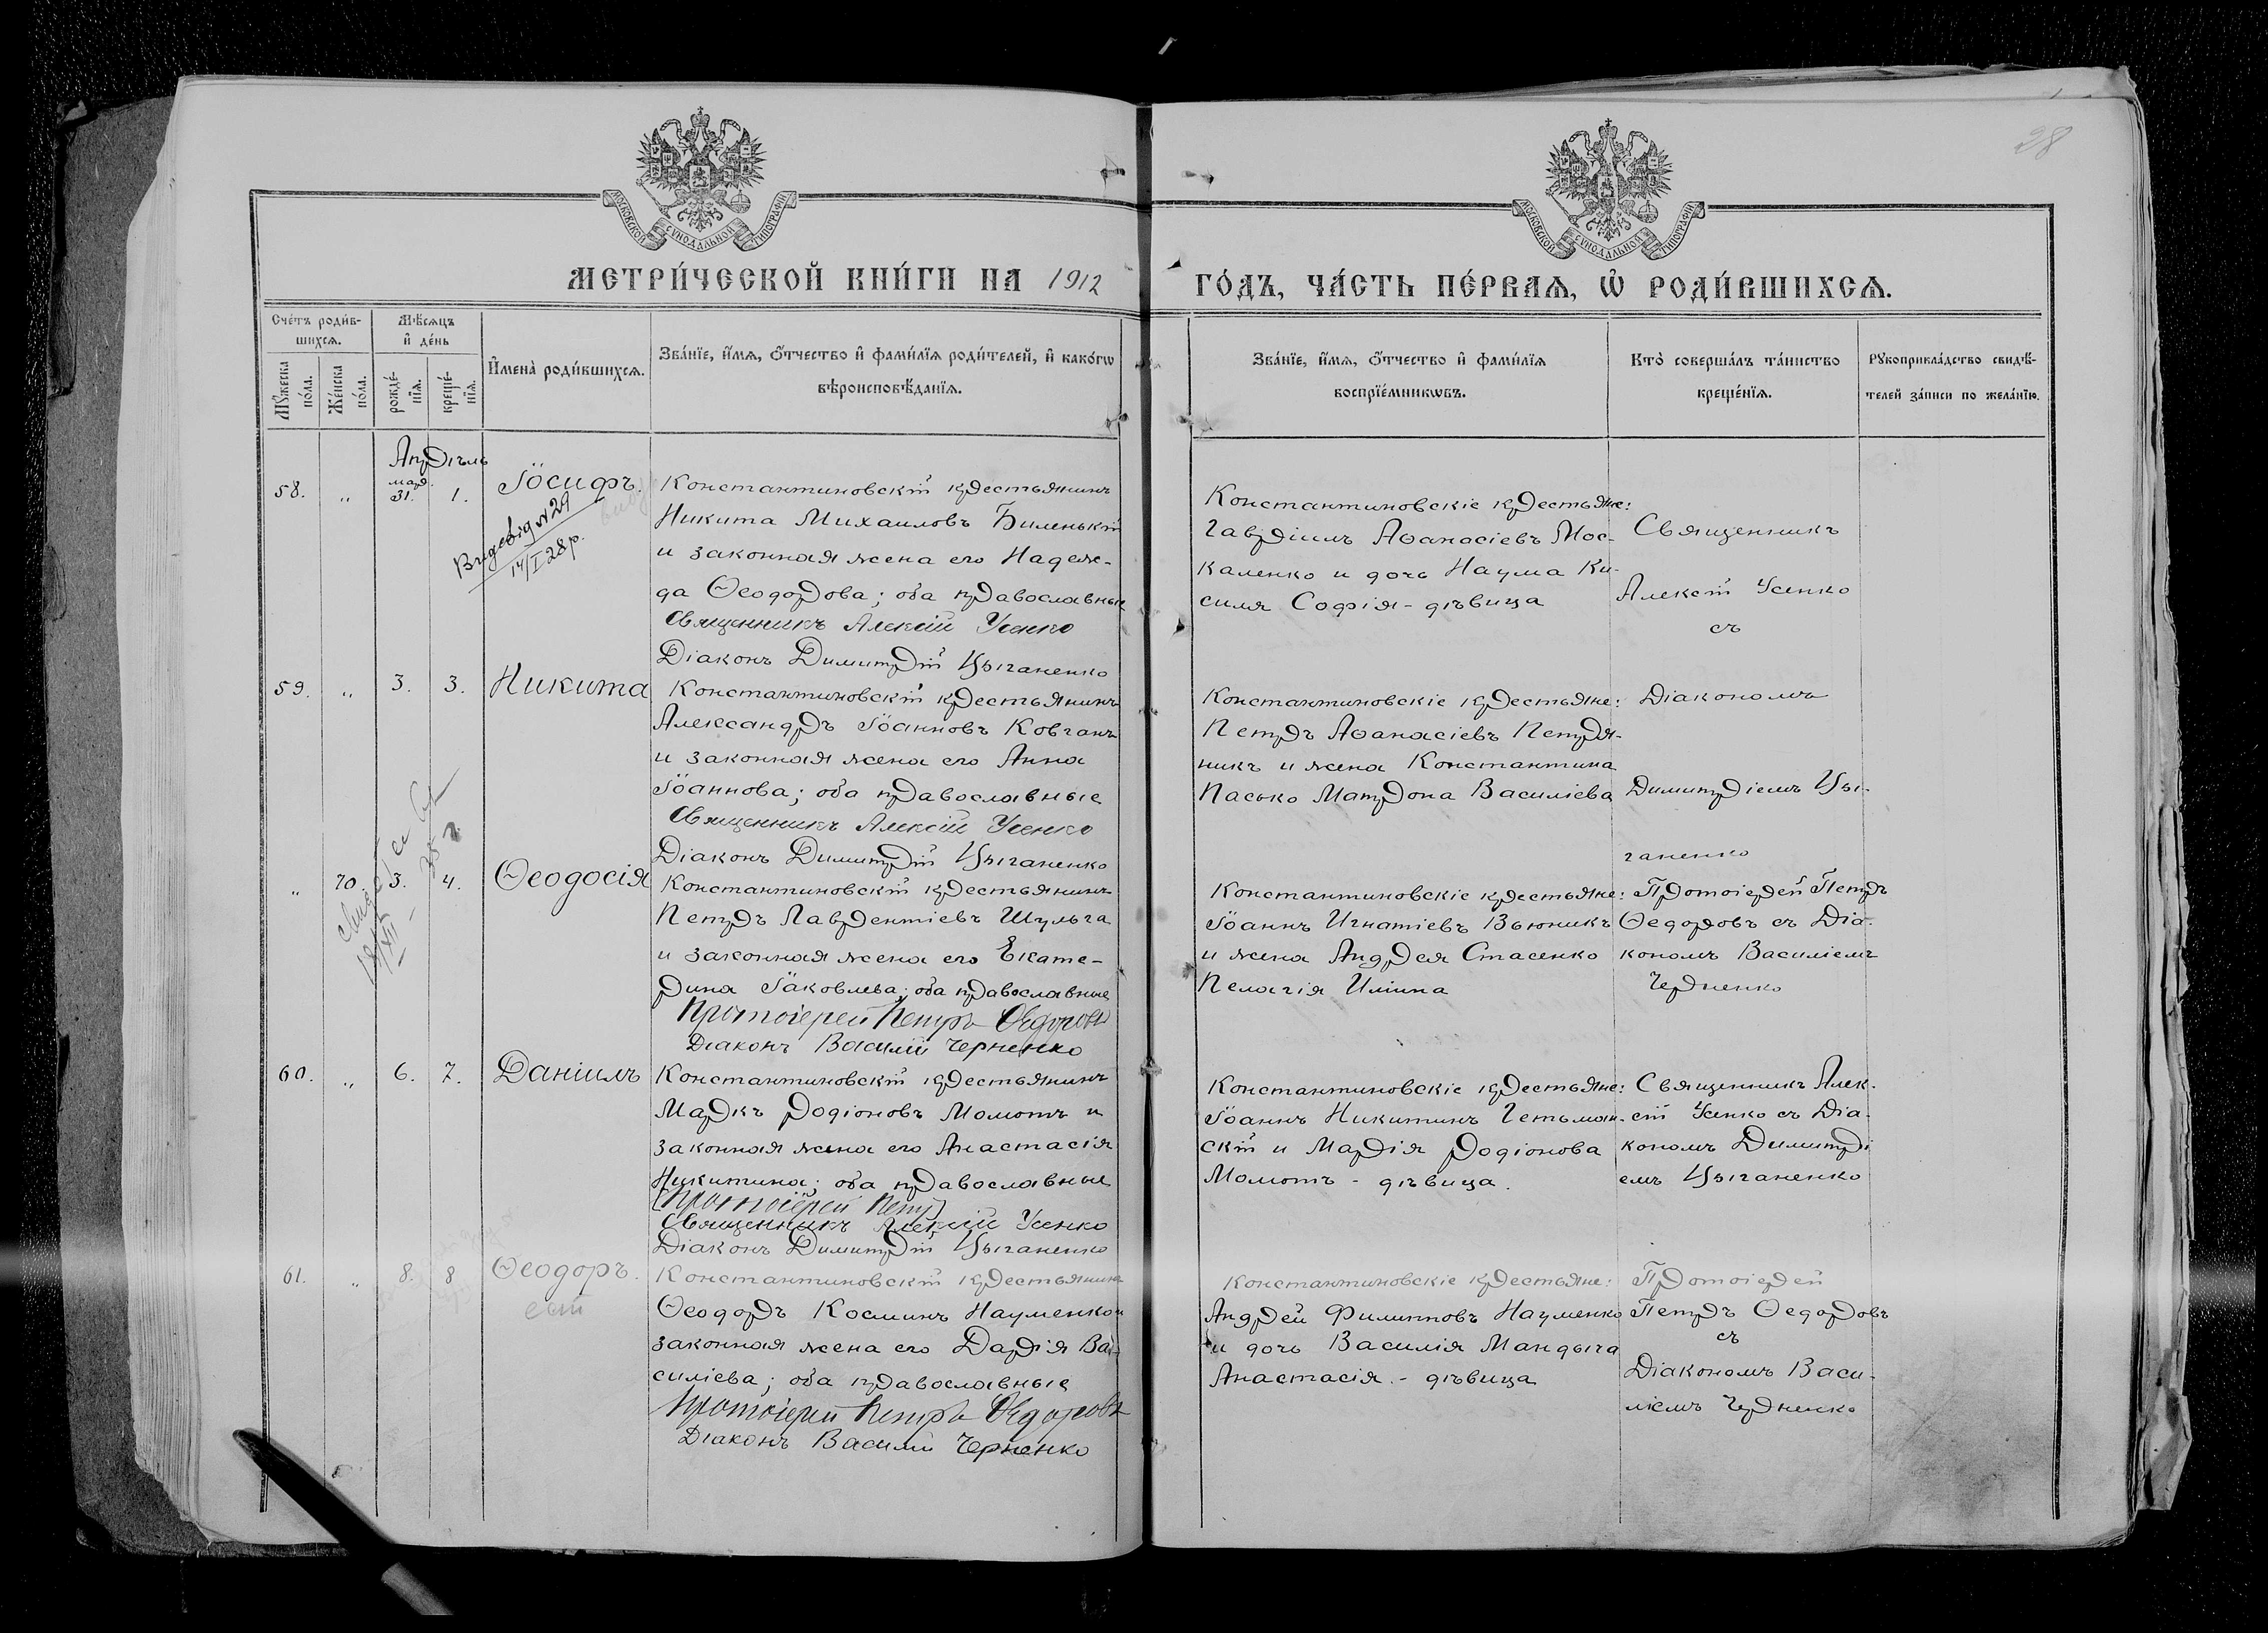 28
МОСКОВСКОЙ СѴНОДАЛЬНОЙ ТИПОГРАФІИ
МОСКОВСКОЙ СѴНОДАЛЬНОЙ ТИПОГРАФІИ
МЕТРИ́ЧЕСКОЙ КНИ́ГИ НА 1912
ГО́ДЪ, ЧА́СТЬ ПЕ́РВАѦ, Ѡ҆ РОДИ́ВШИХСѦ.
Сче́тъ роди́в-
шихсѧ.
Мѣ́сѧцъ
и҆ де́нь
Мꙋ́жеска
по́ла.
Же́нска
по́ла.
рожде́-
нїѧ.
креще́-
нїѧ.
И҆мена̀ роди́вшихсѧ.
Зва́нїе, и҆́мѧ, ѻ҆́тчество и҆ фами́лїѧ роди́телей, и҆ како́гѡ
вѣроисповѣ́данїѧ.
Зва́нїе, и҆́мѧ, ѻ҆́тчество и҆ фами́лїѧ
воспрїе́мникѡвъ.
Кто̀ соверша́лъ та́инство
креще́нїѧ.
Рꙋкоприкла́дство свидѣ́-
телей за́писи по жела́нїю.
Апрѣль
58. „ мар. 31. 1. Іосифъ.
N 29
14/I 28 р.
Константиновскій крестьянинъ
Никита Михаиловъ Биленькій
и законная жена его Надеж-
да Ѳеодорова; оба православные
Священникъ Алексій Усенко
Діаконъ Димитрій Цыганенко
Константиновскіе крестьяне:
Гавріилъ Аѳанасіевъ Мос-
каленко и дочь Наума Ки-
силя Софія - дѣвица
Священникъ
Алексій Усенко
съ
59. „ 3. 3. Никита
Константиновскій крестьянинъ
Александръ Іоанновъ Ковганъ
и законная жена его Анна
Іоаннова; оба православные
Священникъ Алексій Усенко
Діаконъ Димитрій Цыганенко
Константиновскіе крестьяне:
Петръ Аѳанасіевъ Петря-
никъ и жена Константина
Пасько Матрона Василіева
Діакономъ
Димитріемъ Цы-
ганенко
„ 70. 3. 4. Ѳеодосія
Константиновскій крестьянинъ
Петръ Лаврентіевъ Шульга
и законная жена его Екате-
рина Іаковлева; оба православные
Протоіерей Петръ Ѳедоровъ
Діаконъ Василій Черненко
Константиновскіе крестьяне:
Іоаннъ Игнатіевъ Вьюникъ
и жена Андрея Стасенко
Пелагія Иліина
Протоіерей Петръ
Ѳедоровъ съ Діа-
кономъ Василіемъ
Черненко
60. „ 6. 7. Даніилъ
Константиновскій крестьянинъ
Маркъ Родіоновъ Момотъ и
законная жена его Анастасія
Никитина; оба православные
[Протоіерей Петр]
Священникъ Алексій Усенко
Діаконъ Димитрій Цыганенко
Константиновскіе крестьяне:
Іоаннъ Никитинъ Гетьман-
скій и Марія Родіонова
Момотъ - дѣвица.
Священникъ Алек-
сій Усенко съ Діа-
кономъ Димитрі
емъ Цыганенко
61. „ 8. 8 Ѳеодоръ.
Константиновскій крестьянинъ
Ѳеодоръ Косминъ Науменко и
законная жена его Дарія Ва-
силіева; оба православные
Протоіерей Петръ Ѳедоровъ
Діаконъ Василій Черненко
Константиновскіе крестьяне:
Андрей Филипповъ Науменко
и дочь Василія Мандыга
Анастасія - дѣвица
Протоіерей
Петръ Ѳедоровъ
съ
Діакономъ Васи-
ліемъ Черненко